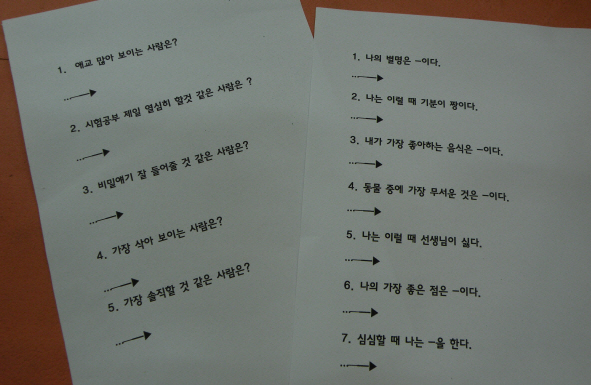 1. 애교 많아 보이는 사람은?
2. 시험공부 제일 열심히 할것 같은 사람은 ?
3. 비밀얘기 잘 들어줄 것 같은 사람은?
4. 가장 삭아 보이는 사람은?
5. 가장 솔직할 것 같은 사람은?
1. 나의 별명은 -이다.
2. 나는 이럴 때 기분이 짱이다.
3. 내가 가장 좋아하는 음식은 -이다.
4. 동물 중에 가장 무서운 것은 -이다.
5. 나는 이럴 때 선생님이 싫다.
6. 나의 가장 좋은 점은 -이다.
7. 심심할 때 나는 -을 한다.